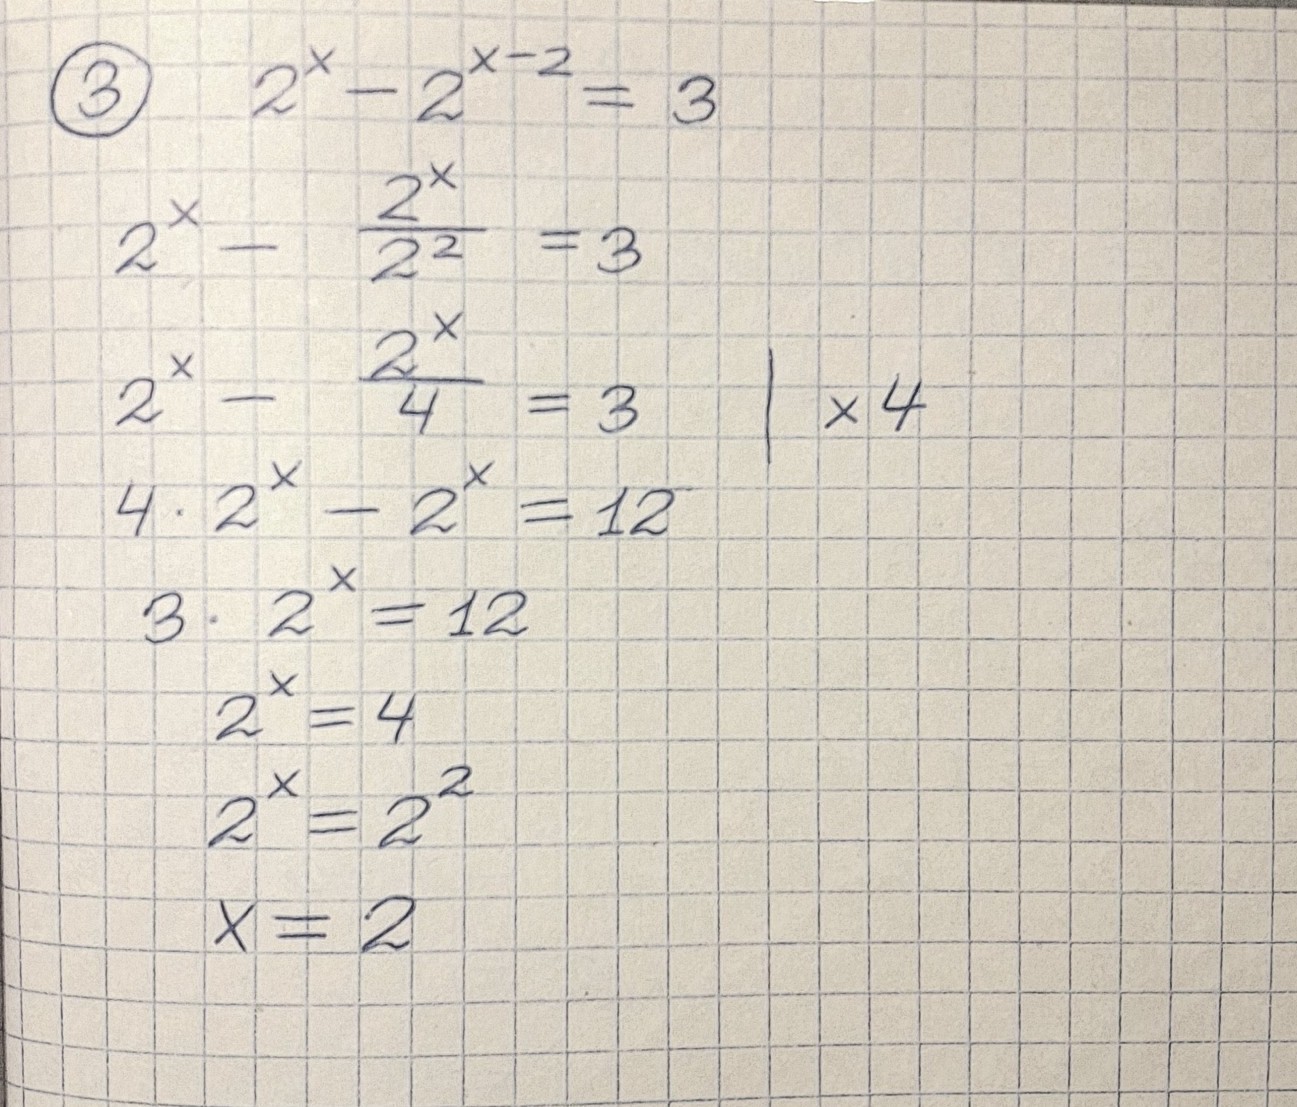 ③ 2^x - 2^(x-2) = 3
2^x - 2^x/2^2 = 3
2^x - 2^x/4 = 3 | × 4
4 · 2^x - 2^x = 12
3 · 2^x = 12
2^x = 4
2^x = 2^2
x = 2